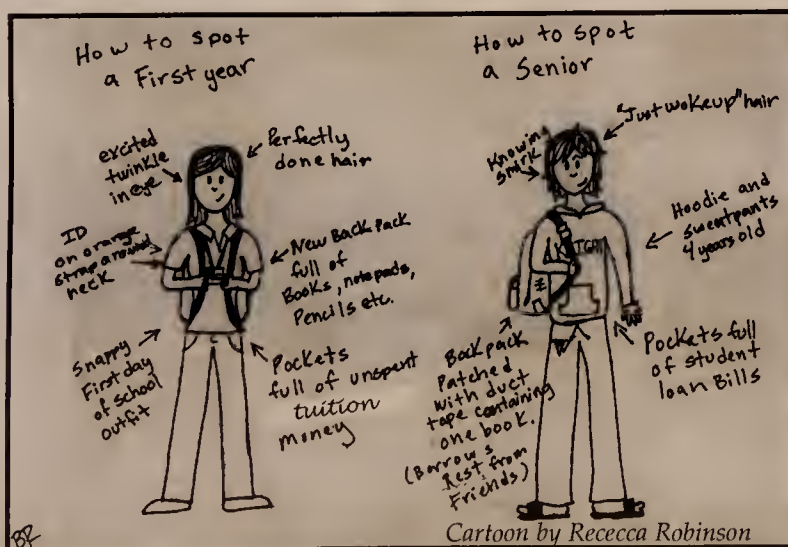 How to spot
a First year
excited
twinkle
in eye
Perfectly
done hair
ID
on orange
strap around
neck
New Back pack
full of
Books, notepads,
Pencils etc.
snappy
First day
of school
outfit
Pockets
full of unspent
tuition
money
How to spot
a Senior
"Just woke up" hair
Knowing
smirk
Hoodie and
sweatpants
4 years old
Backpack
Patched
with duct
tape containing
one book.
(Borrows
Rest from
Friends)
Pockets full
of student
loan Bills
BR
Cartoon by Rececca Robinson